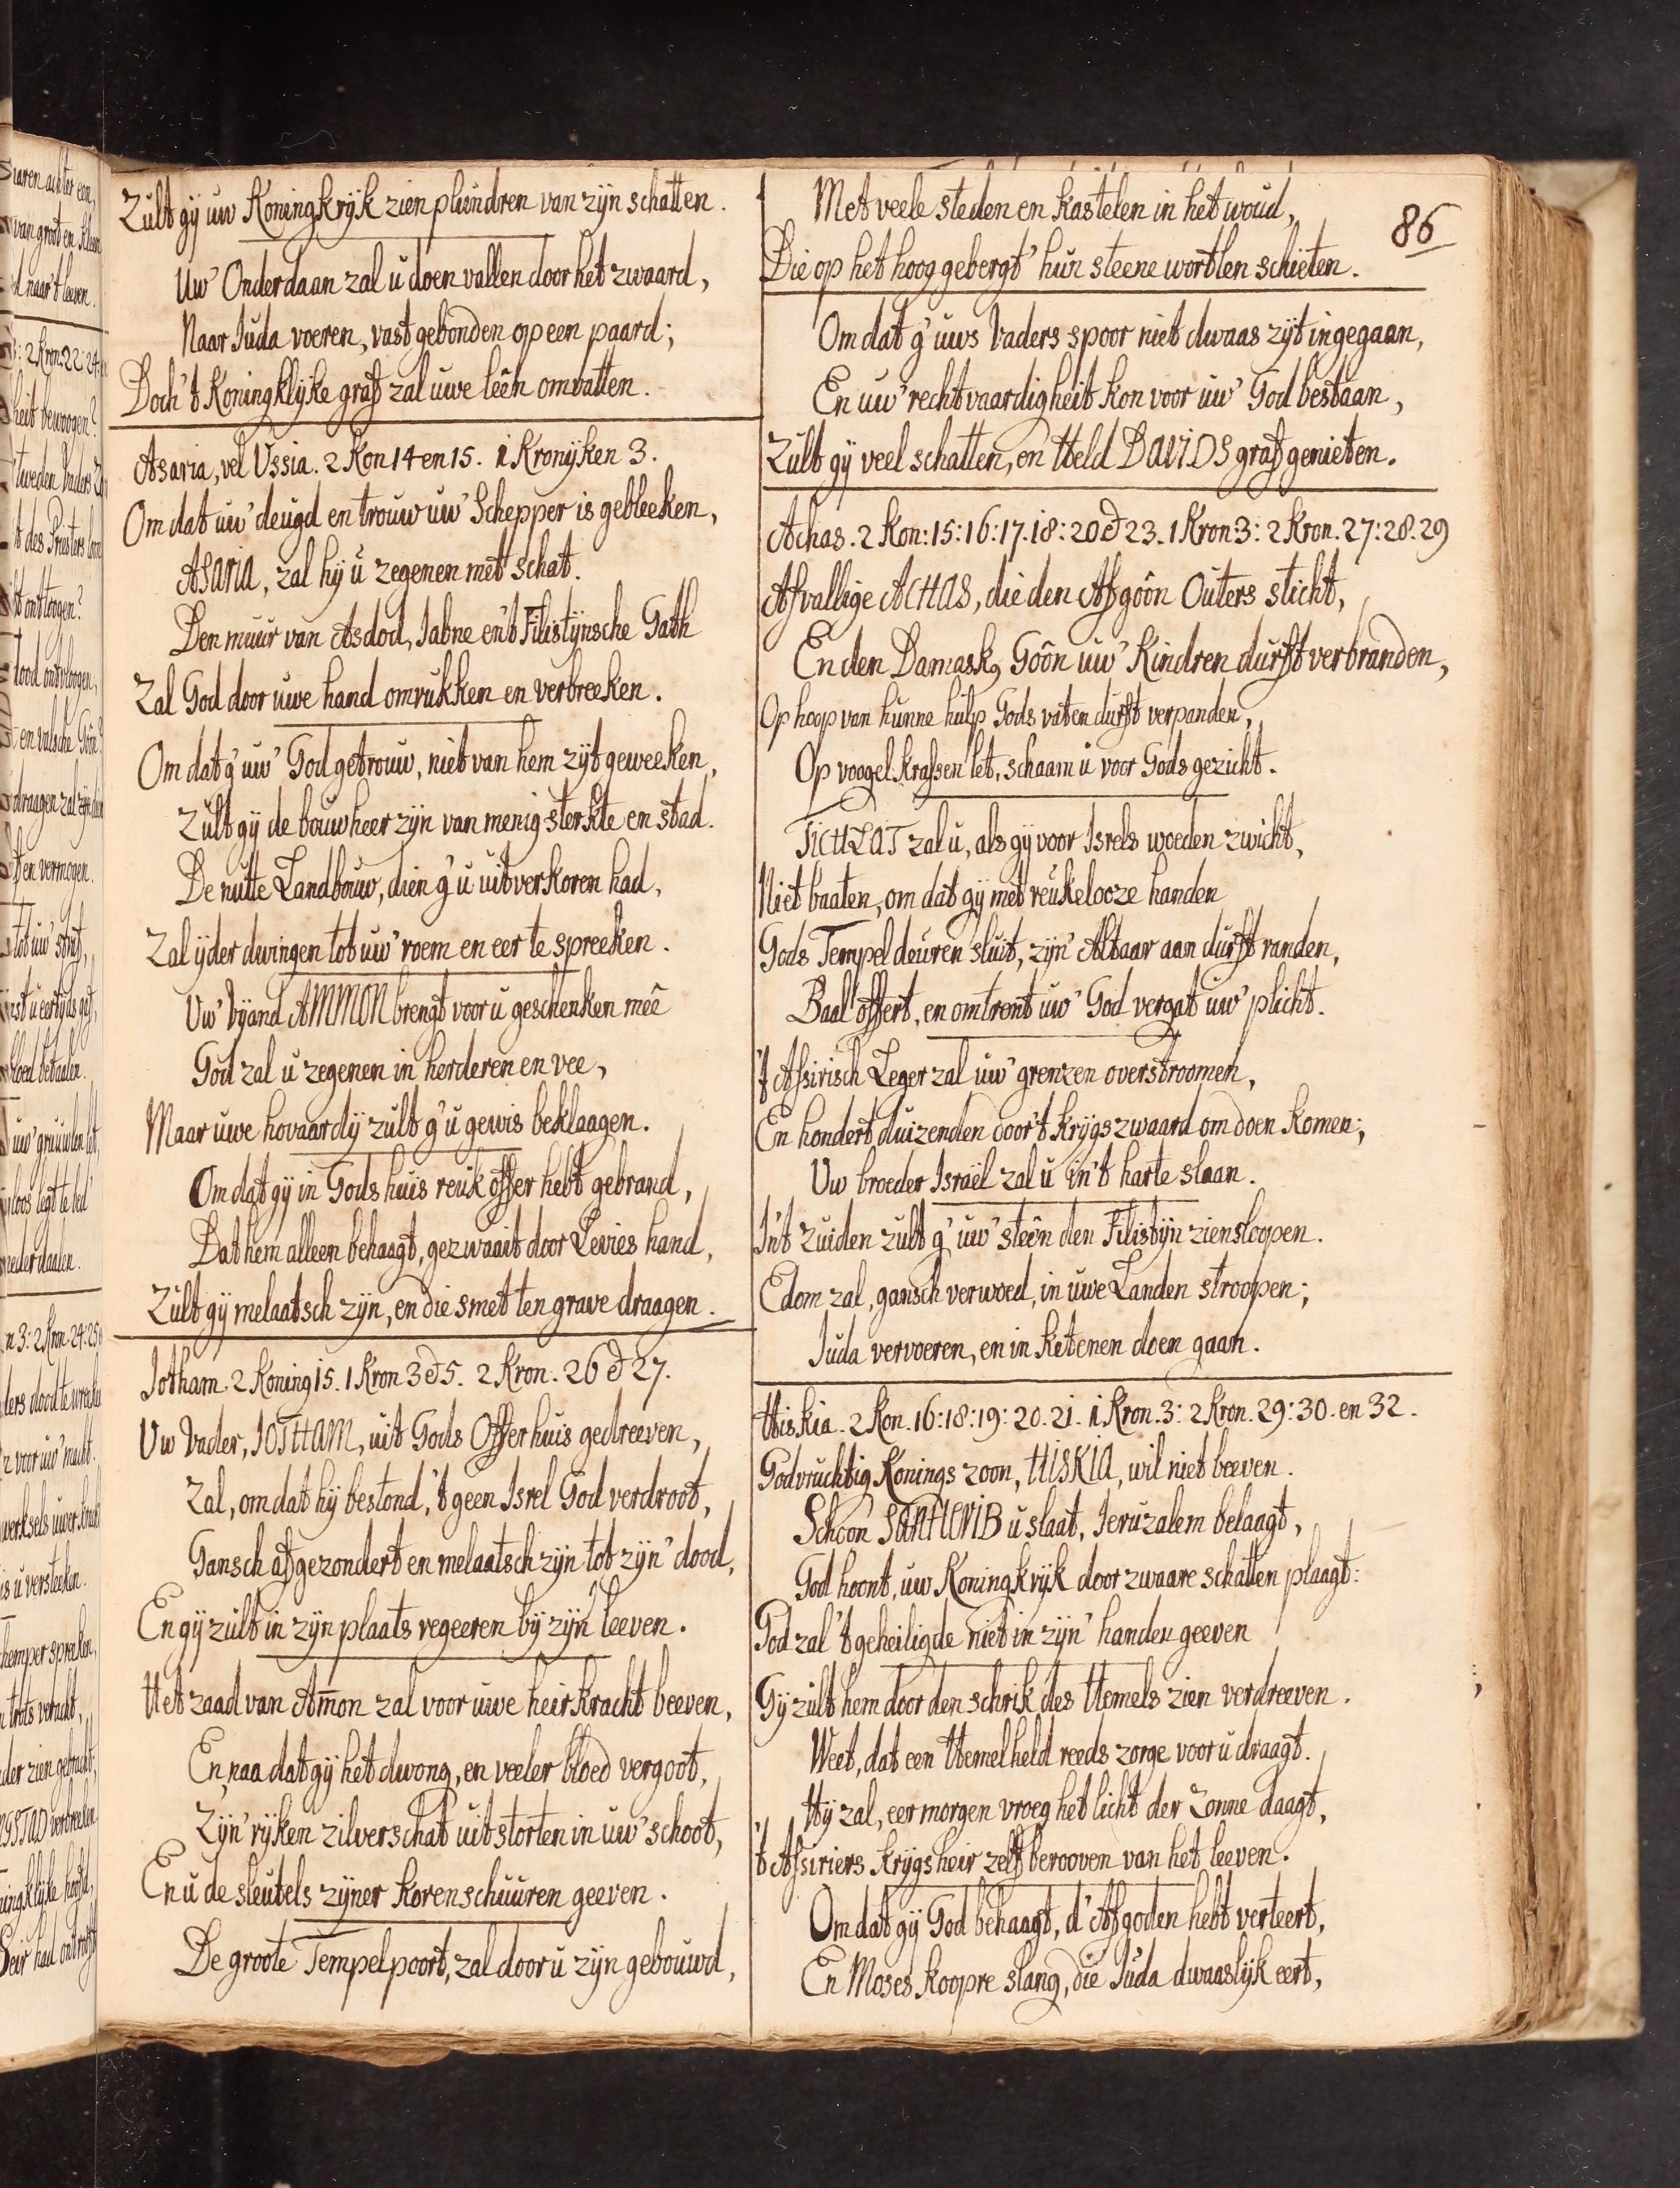 Zult gÿ uw Koningkrÿk zien plundren van zÿn schatten.
Uw' Onderdaan zal u doen vallen door het zwaard,
Naar Juda voeren, vast gebonden op een paard;
Doch 't Koningklÿke graf zal uwe leên omvatten.
Asaria, vel Ussia. 2 Kon 14 en 15. 1 Kronÿken 3.
Om dat uw' deugd en trouw uw' Schepper is gebleeken,
ASARIA, zal hÿ u zegenen met schat.
Den muur van Asdod, Jabne en 't Filistÿnsche Gath
Zal God door uwe hand omrukken en verbreeken.
Om dat g' uw' God getrouw, niet van hem zÿt geweeken,
Zult gÿ de bouwheer zÿn van menig sterkte en stad.
De nutte Landbouw, dien g' u uitverkoren had,
Zal ÿder dwingen tot uw' roem en eer te spreeken.
Uw' Vÿand AMMON brengt voor u geschenken meê
God zal u zegenen in herderen en vee,
Maar uwe hovaardÿ zult g' u gewis beklaagen.
Om dat gÿ in Gods huis reuk offer hebt gebrand,
Dat hem alleen behaagt, gezwaait door Levies hand,
Zult gÿ melaatsch zÿn, en die smet ten grave draagen.
Jotham. 2 Koning 15. 1 Kron 3 & 5. 2 Kron. 26 & 27.
Uw Vader, JOTHAM, uit Gods Offerhuis gedreeven,
Zal, om dat hÿ bestond, 't geen Isrel God verdroot,
Gansch afgezondert en melaatsch zÿn tot zÿn' dood,
En gÿ zult in zÿn plaats regeeren bÿ zÿn' leeven.
Het zaad van Am̄on zal voor uwe heirkracht beeven,
En, naa dat gÿ het dwong, en veeler bloed vergoot,
Zÿn' rÿken zilverschat uitstorten in uw' schoot,
En u de sleutels zÿner korenschuuren geeven.
De groote Tempelpoort, zal door u zÿn gebouwd,
86
Met veele steden en kastelen in het woud,
Die op het hoog gebergt' hun steene wortlen schieten.
Om dat g' uws Vaders spoor niet dwaas zÿt ingegaan,
En uw' rechtvaardigheit kon voor uw' God bestaan,
Zult gÿ veel schatten, en Held DAVIDS graf genieten.
Achas. 2 Kon: 15: 16: 17. 18: 20 & 23. 1 Kron: 3: 2 Kron. 27: 28. 29
Afvallige ACHAS, die den Afgôôn Outers sticht,
En den Damasks Gôôn uw' Kindren durft verbranden,
Op hoop van hunne hulp Gods vaten durft verpanden,
Op voogel krassen let, schaam u voor Gods gezicht.
TICHLAT zal u, als gÿ voor Isrels woeden zwicht,
Niet baaten, om dat gÿ met reukelooze handen
Gods Tempel deuren sluit, zÿn' Altaar aan durft randen,
Baal offert, en omtrent uw' God vergat uw' plicht.
't Assirisch Leger zal uw' grenzen overstroomen,
En hondert duizenden door 't krÿgs zwaard om doen komen;
Uw broeder Israël zal u in 't harte slaan.
In 't zuiden zult g' uw' steên den Filistÿn zien sloopen.
Edom zal, gansch verwoed, in uwe Landen stroopen;
Juda vervoeren, en in ketenen doen gaan.
Hiskia. 2 Kon. 16: 18: 19: 20. 21. 1 Kron. 3: 2 Kron. 29: 30. en 32.
Godvruchtig Konings zoon, HISKIA, wil niet beeven.
Schoon SANHERIB u slaat, Jeruzalem belaagt,
God hoont, uw Koningkrÿk door zwaare schatten plaagt:
God zal 't geheiligde niet in zÿn' handen geeven
Gÿ zult hem door den schrik des Hemels zien verdreeven.
Weet, dat een Hemelheld reeds zorge voor u draagt.
Hÿ zal, eer morgen vroeg het licht der Zonne daagt,
't Assiriers krÿgsheir zelf berooven van het leeven.
Om dat gÿ God behaagt, d' Afgoden hebt verteert,
En Moses koopre slang, die Juda dwaaslÿk eert,